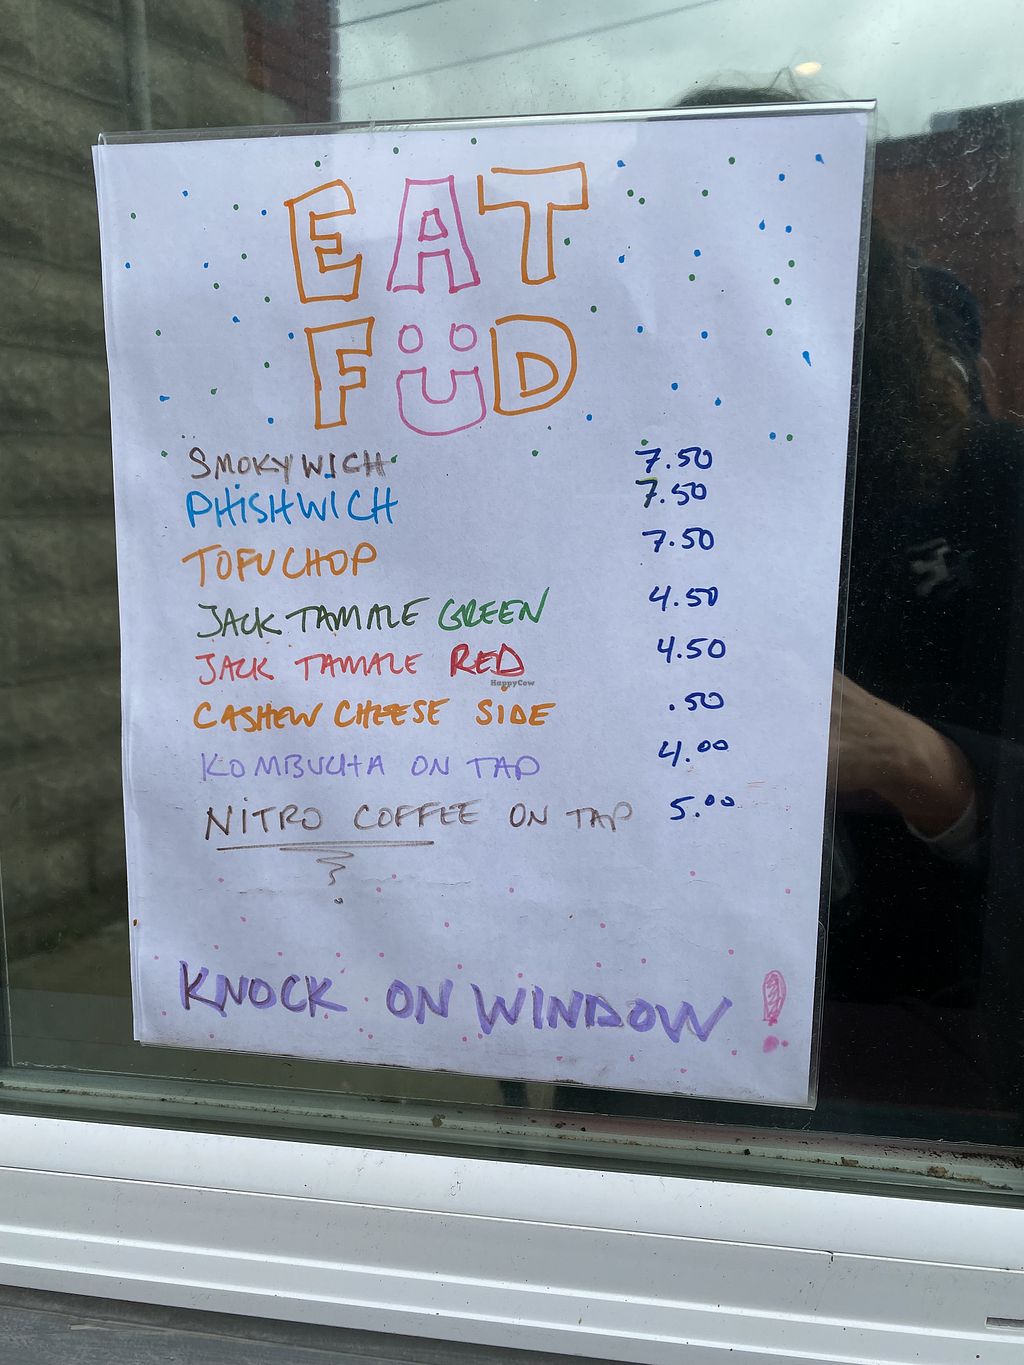 EAT
FÜD
SMOKYWICH 7.50
PHISHWICH 7.50
TOFU CHOP 7.50
JACK TAMALE GREEN 4.50
JACK TAMALE RED 4.50
HappyCow
CASHEW CHEESE SIDE .50
KOMBUCHA ON TAP 4.00
NITRO COFFEE ON TAP 5.00
KNOCK ON WINDOW !